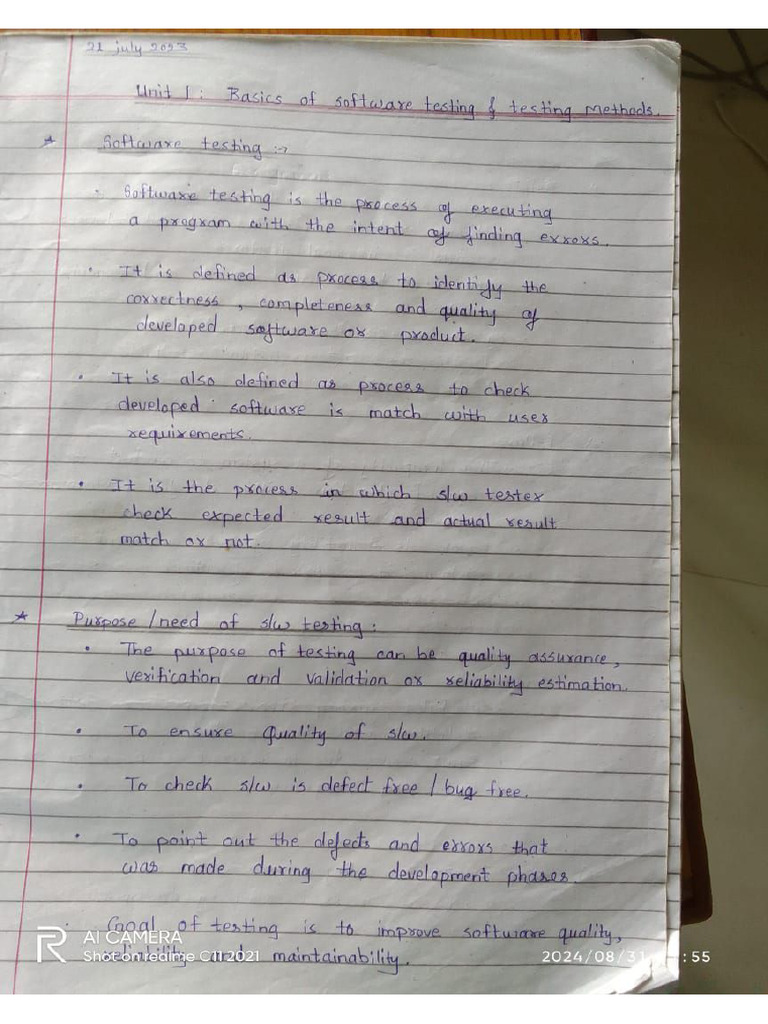 21 july 2023
Unit 1: Basics of software testing & testing methods.
* Software testing :-
• Software testing is the process of executing
a program with the intent of finding errors.
• It is defined as process to identify the
correctness, completeness and quality of
developed software or product.
• It is also defined as process to check
developed software is match with user
requirements.
• It is the process in which s/w tester
check expected result and actual result
match or not.
* Purpose /need of s/w testing:
• The purpose of testing can be quality assurance,
verification and validation or reliability estimation.
• To ensure quality of s/w.
• To check s/w is defect free / bug free.
• To point out the defects and errors that
was made during the development phases.
• Goal of testing is to improve software quality,
reliability and maintainability.
R AI CAMERA
Shot on realme C11 2021
2024/08/31 :55